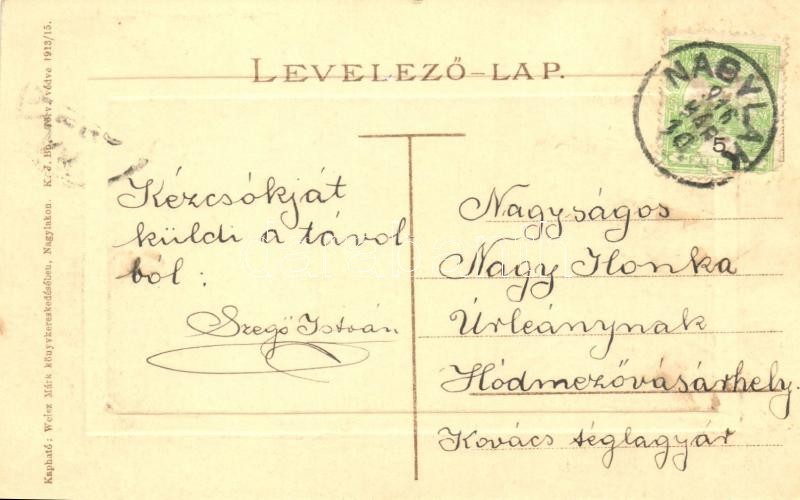 LEVELEZŐ-LAP.
NAGYLAK
916
MÁR
10
5
Kézcsókját
küldi a távol
ból:
Szegő István
Nagyságos
Nagy Ilonka
Úrleánynak
Hódmezővásárhely.
Kovács téglagyár
Kapható: Weisz Márk könyvkereskedésében, Nagylakon. K. J. Bp. Törv. védve 1913/15.